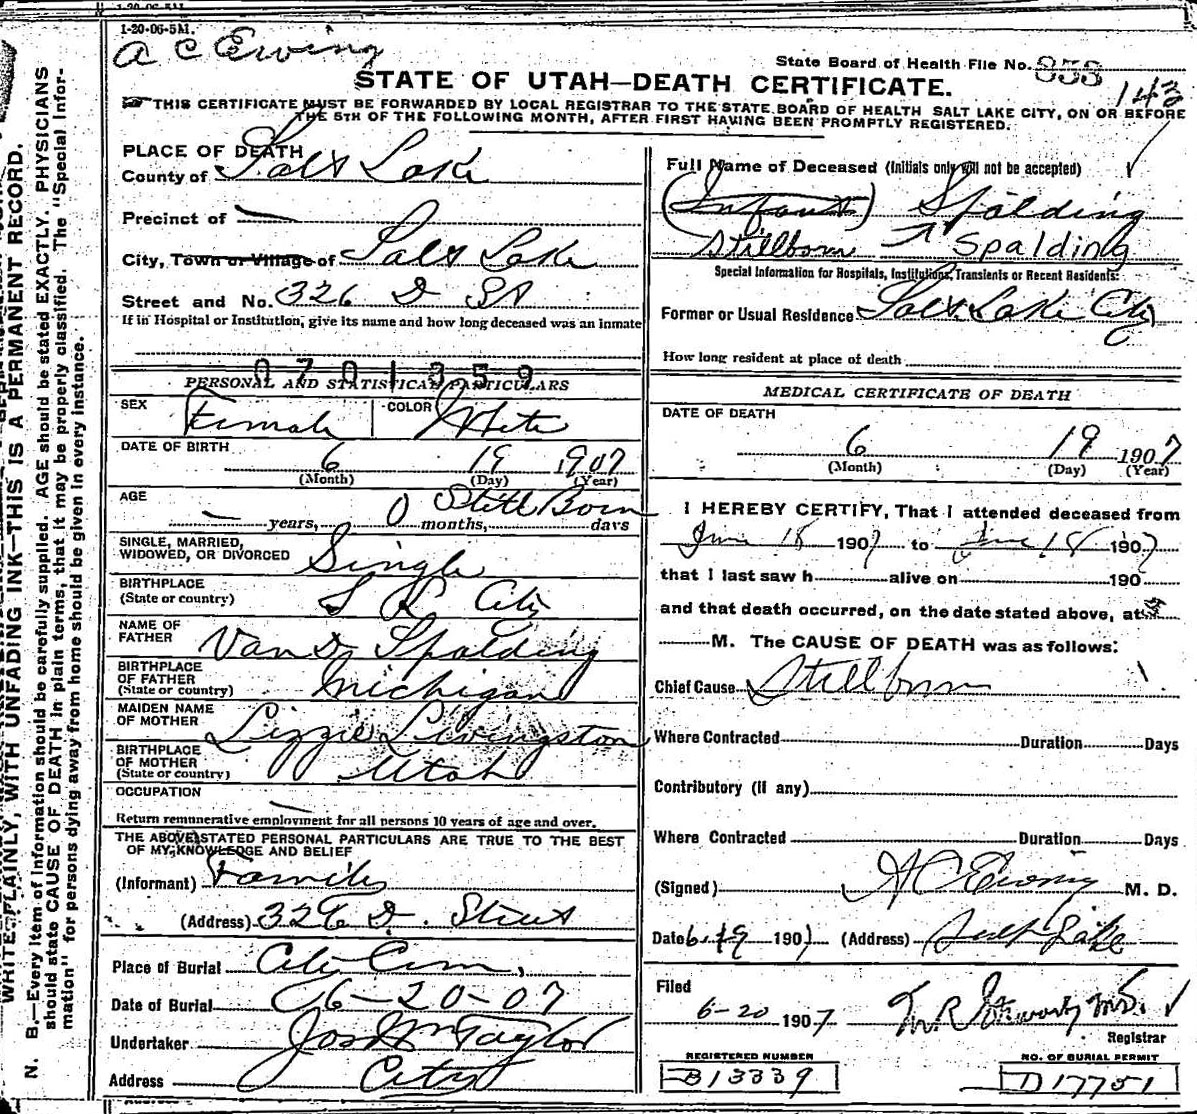 1-20-06-5M.
A C Ewing
State Board of Health File No. 853
143
STATE OF UTAH—DEATH CERTIFICATE.
THIS CERTIFICATE MUST BE FORWARDED BY LOCAL REGISTRAR TO THE STATE BOARD OF HEALTH SALT LAKE CITY, ON OR BEFORE
THE 5TH OF THE FOLLOWING MONTH, AFTER FIRST HAVING BEEN PROMPTLY REGISTERED.
WRITE PLAINLY, WITH UNFADING INK—THIS IS A PERMANENT RECORD.
N. B.—Every item of information should be carefully supplied. AGE should be stated EXACTLY. PHYSICIANS
should state CAUSE OF DEATH in plain terms, that it may be properly classified. The "Special Infor-
mation" for persons dying away from home should be given in every instance.
PLACE OF DEATH
County of Salt Lake
Precinct of —
City, Town or Village of Salt Lake
Street and No. 326 D St
If in Hospital or Institution, give its name and how long deceased was an inmate
0701359
PERSONAL AND STATISTICAL PARTICULARS
SEX Female COLOR White
DATE OF BIRTH
6 19 1907
(Month) (Day) (Year)
AGE Still Born
— years, 0 months, days
SINGLE, MARRIED,
WIDOWED, OR DIVORCED Single
BIRTHPLACE
(State or country) S L City
NAME OF
FATHER Van D. Spalding
BIRTHPLACE
OF FATHER
(State or country) Michigan
MAIDEN NAME
OF MOTHER Lizzie Livingston
BIRTHPLACE
OF MOTHER
(State or country) Utah
OCCUPATION —
Return remunerative employment for all persons 10 years of age and over.
THE ABOVE STATED PERSONAL PARTICULARS ARE TRUE TO THE BEST
OF MY KNOWLEDGE AND BELIEF
(Informant) Family
(Address) 326 D. Street
Place of Burial City Cem,
Date of Burial 6-20-07
Undertaker Jos Wm Taylor
Address City
Full Name of Deceased (Initials only will not be accepted)
(Infant) Spalding
Stillborn Spalding
Special Information for Hospitals, Institutions, Transients or Recent Residents:
Former or Usual Residence Salt Lake City
How long resident at place of death
MEDICAL CERTIFICATE OF DEATH
DATE OF DEATH
6 19 1907
(Month) (Day) (Year)
I HEREBY CERTIFY, That I attended deceased from
June 18 1907 to June 18 1907
that I last saw h alive on 190
and that death occurred, on the date stated above, at
M. The CAUSE OF DEATH was as follows:
Chief Cause Stillborn
Where Contracted Duration Days
Contributory (if any)
Where Contracted Duration Days
(Signed) A C Ewing M. D.
Date 6-19 1907 (Address) Salt Lake
Filed
6-20 1907
Registrar
REGISTERED NUMBER
B13339
NO. OF BURIAL PERMIT
D17751